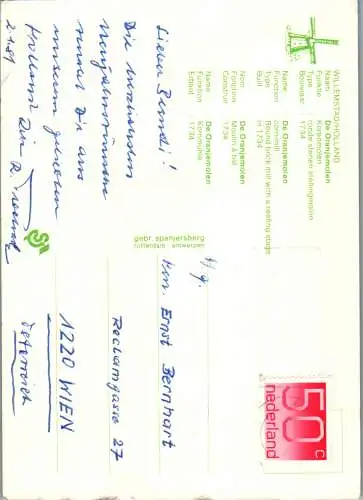 WILLEMSTAD/HOLLAND
Naam De Oranjemolen
Funktie Korenmolen
Type ronde stenen stellingmolen
Bouwjaar 1734
Name De Oranjemolen
Function cornmill
Type Round brick mill with a reefing stage
Built in 1734
Nom De Oranjemolen
Fonction Moulin à blé
Construit 1734
Name De Oranjemolen
Funktion Kornmühle
Erbaut 1734
gebr. spanjersberg
rotterdam - antwerpen
Lieber Burdi!
Die herzlichsten
Neujahrswünsche
sendet Dir aus
unserem geliebten
Holland Dein R.
2.1.84
Hrn. Ernst Bernhart
Reclamgasse 27
1220 WIEN
Österreich
50c
nederland